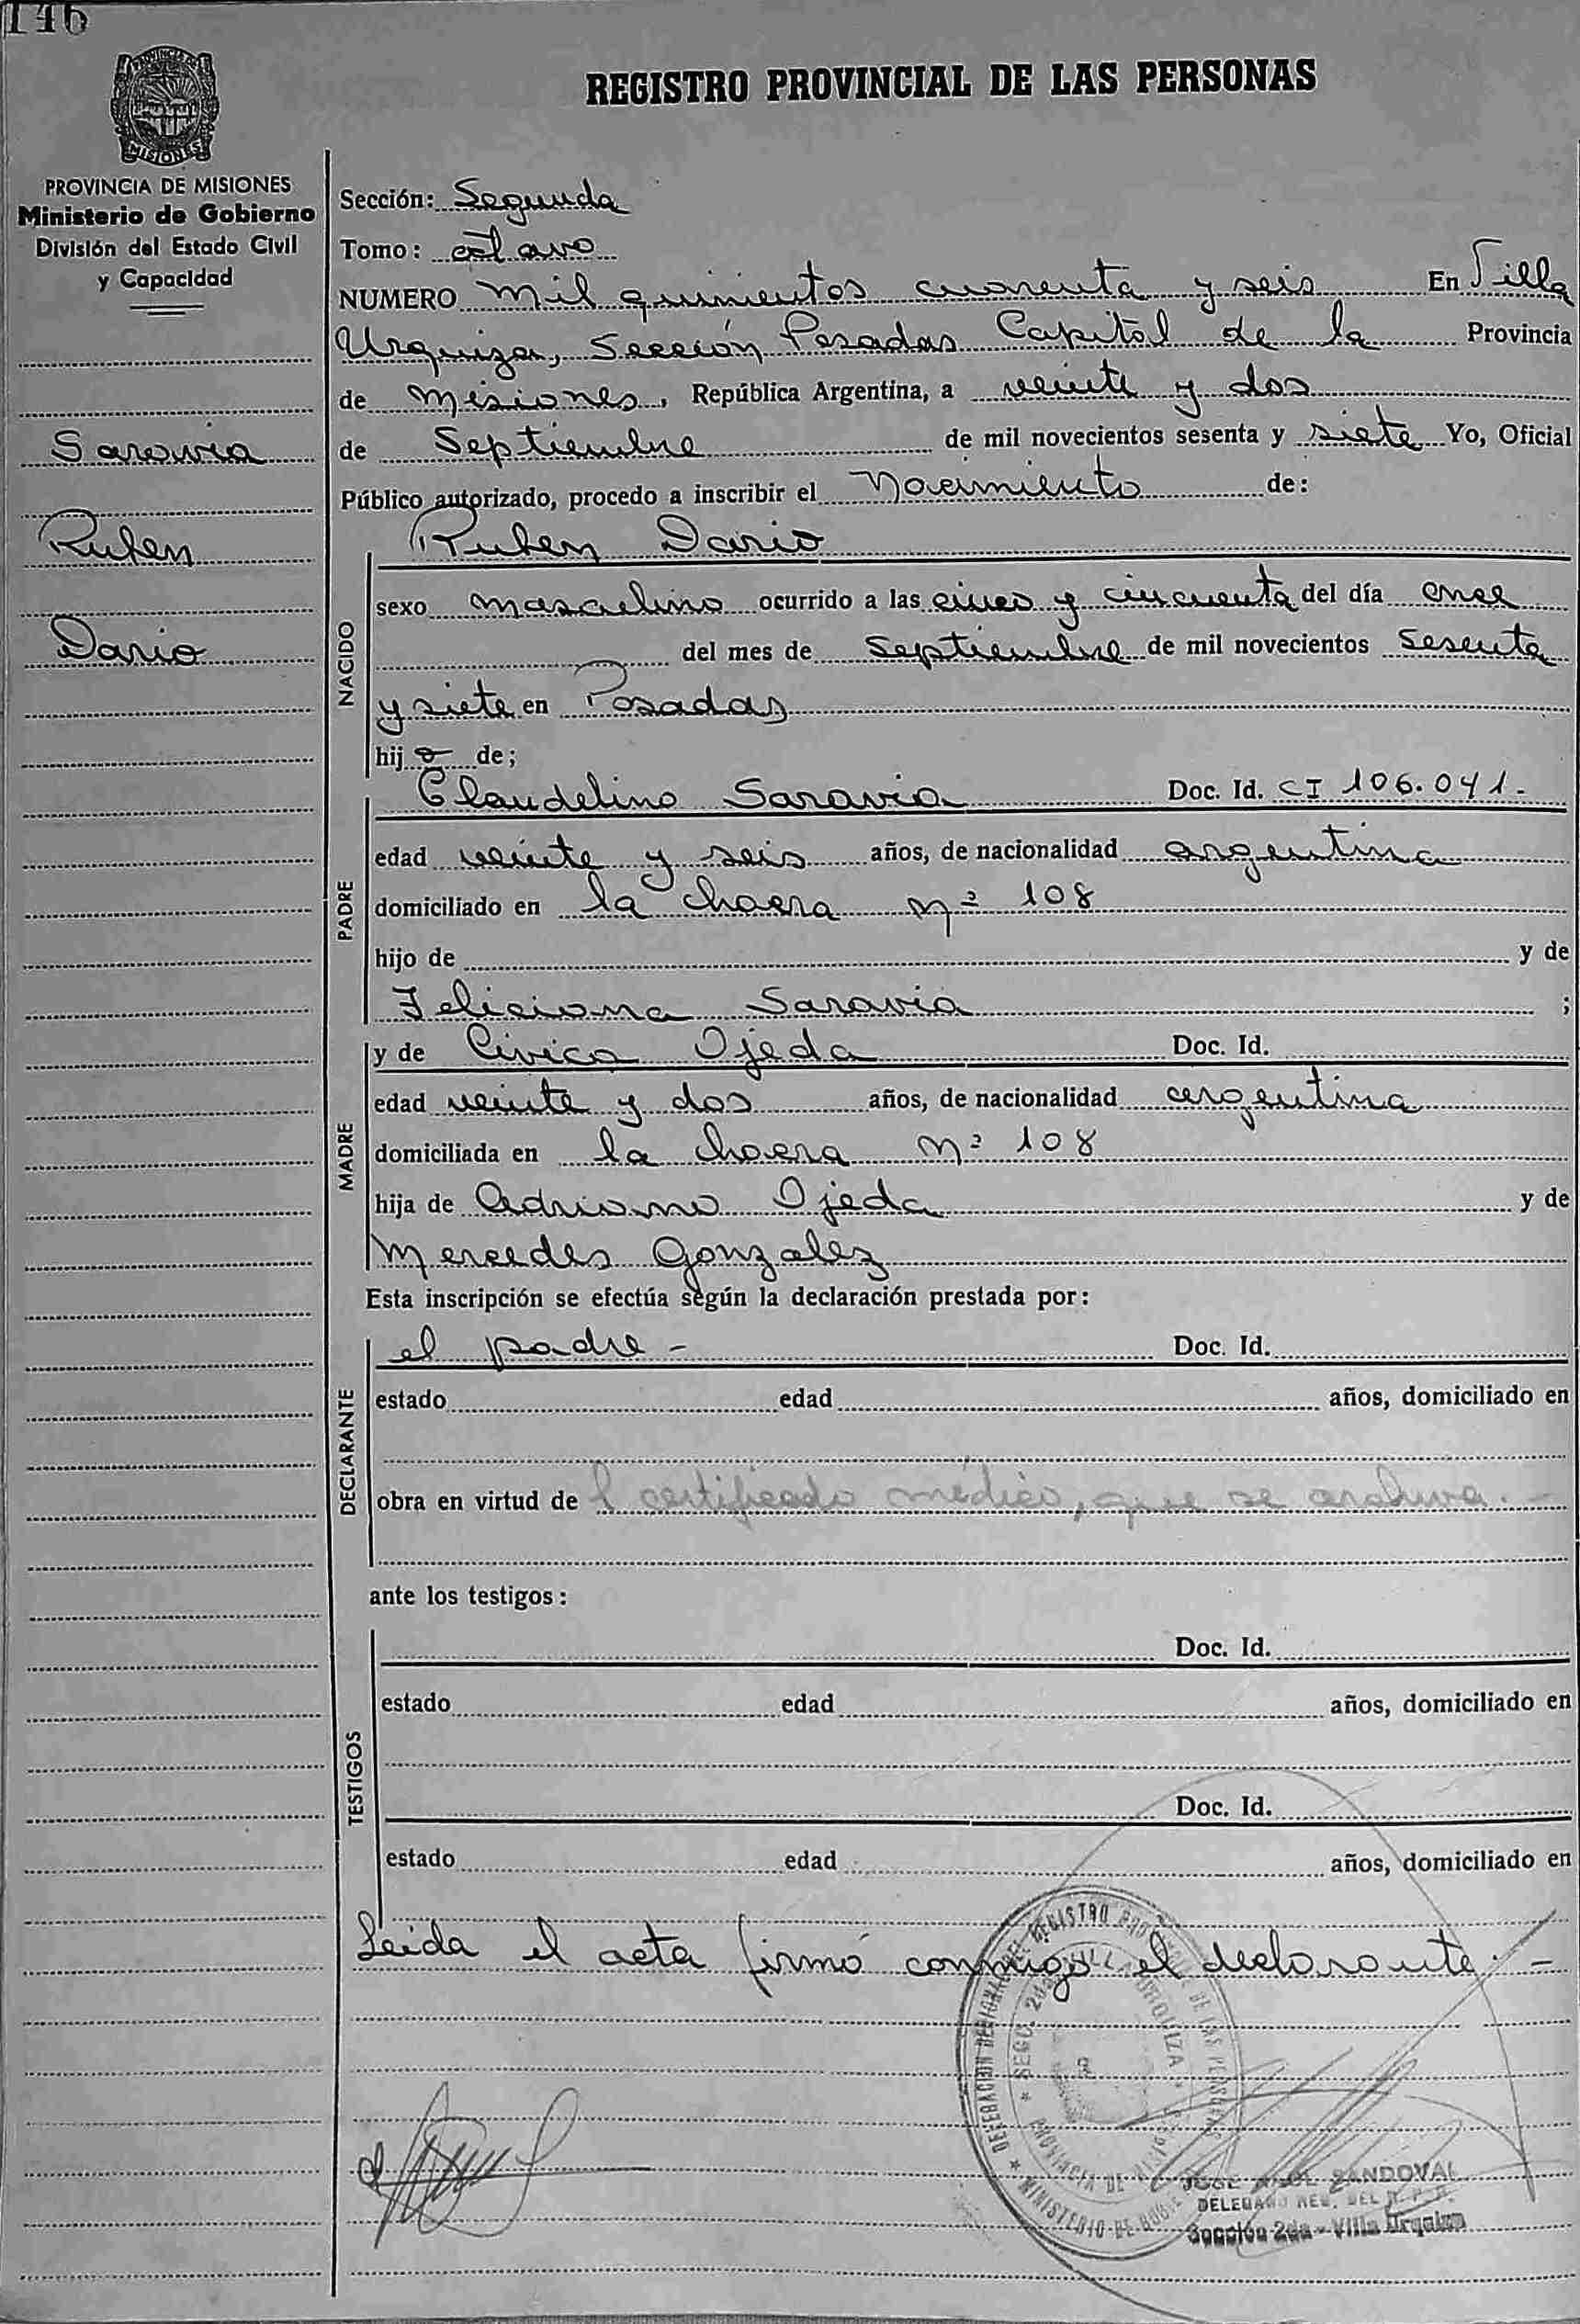 146
PROVINCIA DE MISIONES
Ministerio de Gobierno
División del Estado Civil
y Capacidad
Saravia
Ruben
Dario
REGISTRO PROVINCIAL DE LAS PERSONAS
Sección: Segunda
Tomo: octavo
NUMERO mil quinientos cuarenta y seis En Villa
Urquiza, Sección Posadas Capital de la Provincia
de Misiones, República Argentina, a veinte y dos
de Septiembre de mil novecientos sesenta y siete Yo, Oficial
Público autorizado, procedo a inscribir el Nacimiento de:
Ruben Dario
NACIDO
sexo masculino ocurrido a las cinco y cincuenta del día once
del mes de Septiembre de mil novecientos sesenta
y siete en Posadas
hijo de;
Claudelino Saravia Doc. Id. CI 106.041.-
PADRE
edad veinte y seis años, de nacionalidad argentina
domiciliado en la chacra nº 108
hijo de y de
Feliciana Saravia ;
y de Civica Ojeda Doc. Id.
MADRE
edad veinte y dos años, de nacionalidad argentina
domiciliada en la chacra nº 108
hija de Adriano Ojeda y de
Mercedes Gonzalez
Esta inscripción se efectúa según la declaración prestada por:
el padre - Doc. Id.
DECLARANTE
estado edad años, domiciliado en
obra en virtud de l certificado médico, que se archiva.-
ante los testigos:
TESTIGOS
Doc. Id.
estado edad años, domiciliado en
Doc. Id.
estado edad años, domiciliado en
Leida el acta firmó conmigo el declarante.-
REGISTRO DE LAS PERSONAS
SECC. 2da URQUIZA
PROVINCIA DE
MINISTERIO DE
JOSE SANDOVAL
DELEGADO REG. DEL R. P. P.
Sección 2da - Villa Urquiza